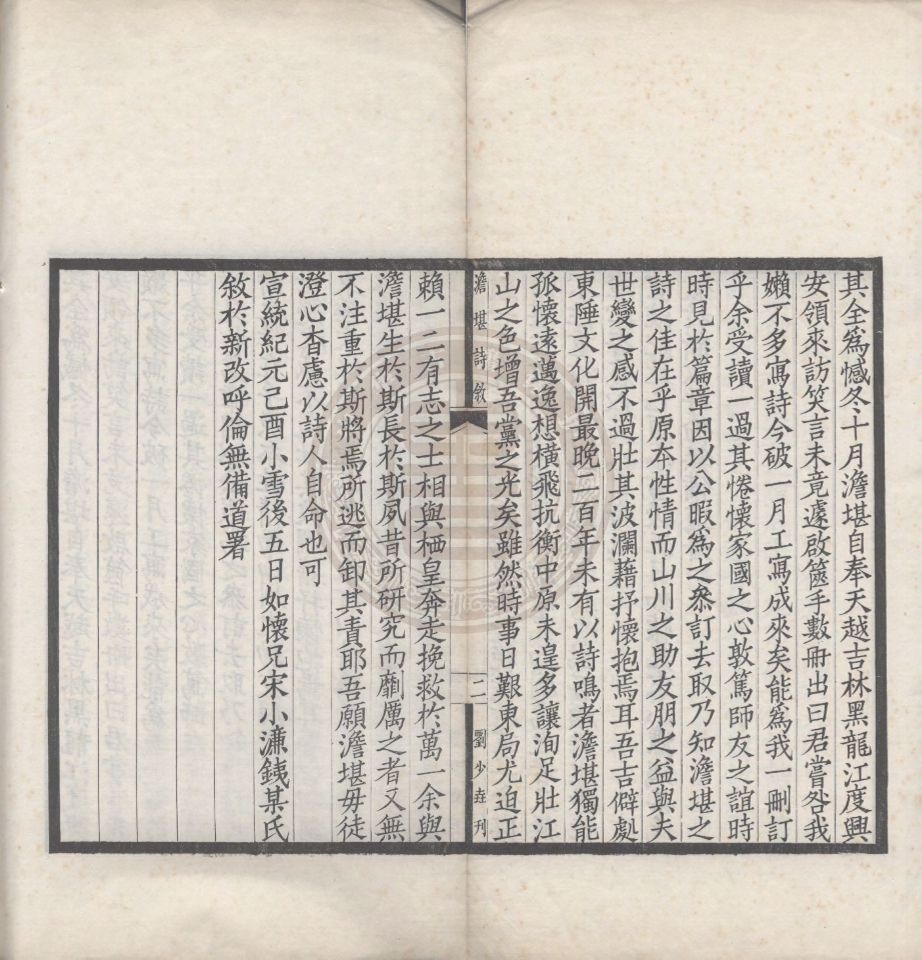 其全爲憾冬十月澹堪自奉天越吉林黑龍江度興
安領來訪笑言未竟遽啟篋手數冊出曰君嘗咎我
嬾不多寫詩今破一月工寫成來矣能爲我一刪訂
乎余受讀一過其惓懷家國之心敦篤師友之誼時
時見於篇章因以公暇爲之叅訂去取乃知澹堪之
詩之佳在乎原夲性情而山川之助友朋之益與夫
世變之感不過壯其波瀾藉抒懷抱焉耳吾吉僻處
東陲文化開最晚二百年未有以詩鳴者澹堪獨能
孤懷遠邁逸想橫飛抗衡中原未遑多讓洵足壯江
山之色增吾黨之光矣雖然時事日艱東局尤迫正
澹堪詩敘
二
劉少垚刊
賴一二有志之士相與栖皇奔走挽救於萬一余與
澹堪生於斯長於斯夙昔所研究而劘厲之者又無
不注重於斯將焉所逃而卸其責耶吾願澹堪毋徒
澄心杳慮以詩人自命也可
宣統紀元己酉小雪後五日如懷兄宋小濂銕某氏
敘於新改呼倫兵備道署